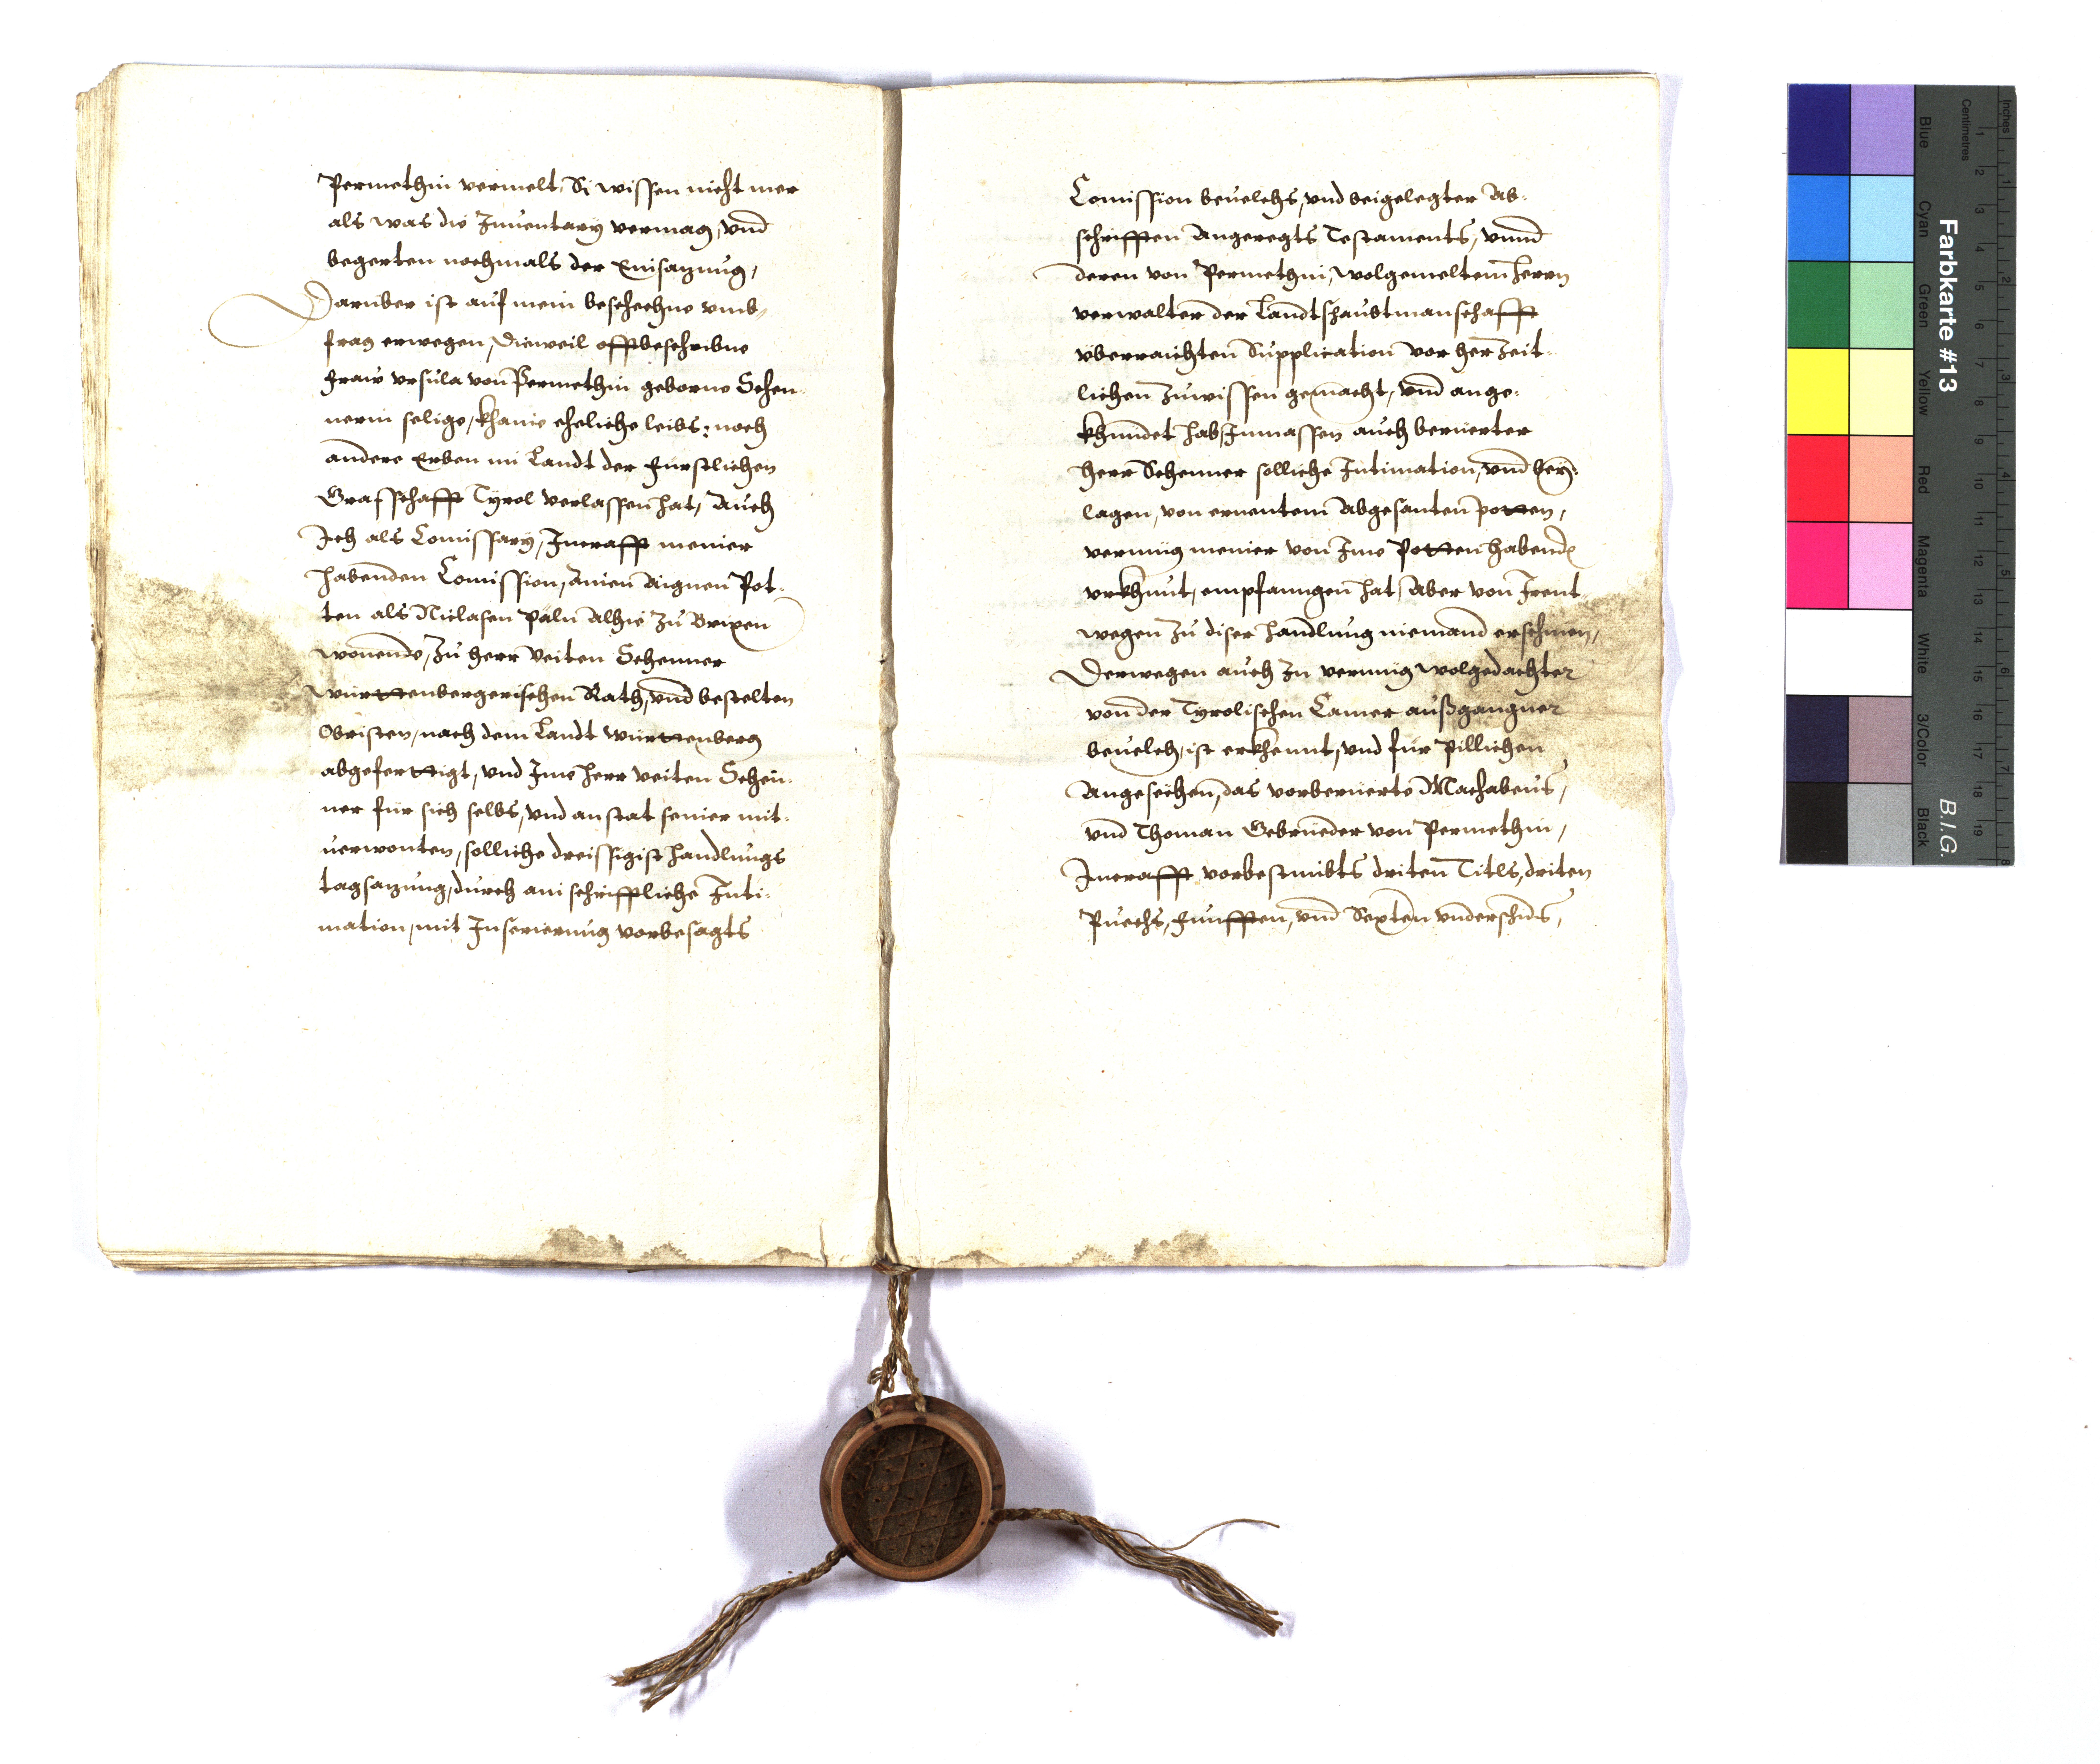 Permethin vermelt, Si wissen nicht mer
als was die Inuentary vermag, vnd
begerten nochmals der Einsazung,
Darüber ist auf mein beschechne vmb-
frag erwegen, Dieweil offtbeschribne
fraw Vrsula von Permethin geborne Schen-
nerin selige, khanie eheliche leibs: noch
andere Erben im Landt der Fürstlichen
Grafschafft Tyrol verlassen hat, Auch
Ich als Comissary, Incrafft meiner
habenden Comission, ainen aignen Pot-
ten als Niclasen Paln Alhie zu Brixen
wonende, zu herr Veiten Schenner
württenbergerischen Rath, vnd bestelten
Obristen, nach dem Landt württenberg
abgeferttigt, vnd Ime herr Veiten Schen-
ner für sich selbs, vnd anstat seiner mit-
uerwonten, solliche dreissigist handlungs
tagsazung, durch ain schrifftliche Inti-
mation, mit Inserierung vorbesagts
Comission beuelchs, vnd beigelegter Ab-
schrifften Angeregts Testaments, vnnd
deren von Permethin, wolgemeltem herrn
verwalter der Landtshaubtmanschafft
überraichten Supplication vor her zeit-
lichen zuwissen gemacht, vnd ange-
khündet hab, Inmassen auch berüerter
herr Schenner solliche Intimation, vnd
lagen, von ernentem Abgesanten potten,
vermüg meiner von Ime Potten habende
vrkhunt, empfanngen hat, Aber von Irent-
wegen zu diser handlung niemand erschinen,
Derwegen auch zu vermüg wolgedachter
von der Tyrolischen Camer außgangner
beuelch, ist erkhennt, vnd für pillichen
Angesechen, das vorberüerte Machabeus,
vnd Thoman Gebrüeder von Permethin,
Incrafft vorbestimbts driten Titls, driten
Puechs, fünfften, vnd Sexten vnderschids,
Farbkarte #13
B.I.G.
Inches
Centimetres
Blue
Cyan
Green
Yellow
Red
Magenta
White
3/Color
Black
1
2
3
4
5
6
7
8
9
10
11
12
13
14
15
16
17
18
19
1
2
3
4
5
6
7
8